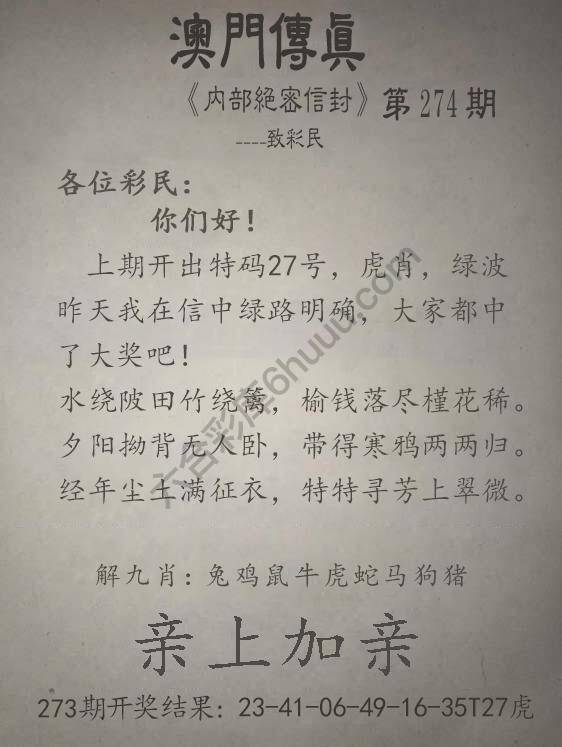 澳門傳真
《内部絕密信封》第274期
----致彩民
各位彩民：
你们好！
上期开出特码27号，虎肖，绿波
昨天我在信中绿路明确，大家都中
了大奖吧！
水绕陂田竹绕篱，榆钱落尽槿花稀。
夕阳拗背无人卧，带得寒鸦两两归。
经年尘土满征衣，特特寻芳上翠微。
六合彩库6huuu.com
解九肖：兔鸡鼠牛虎蛇马狗猪
亲上加亲
273期开奖结果：23-41-06-49-16-35T27虎